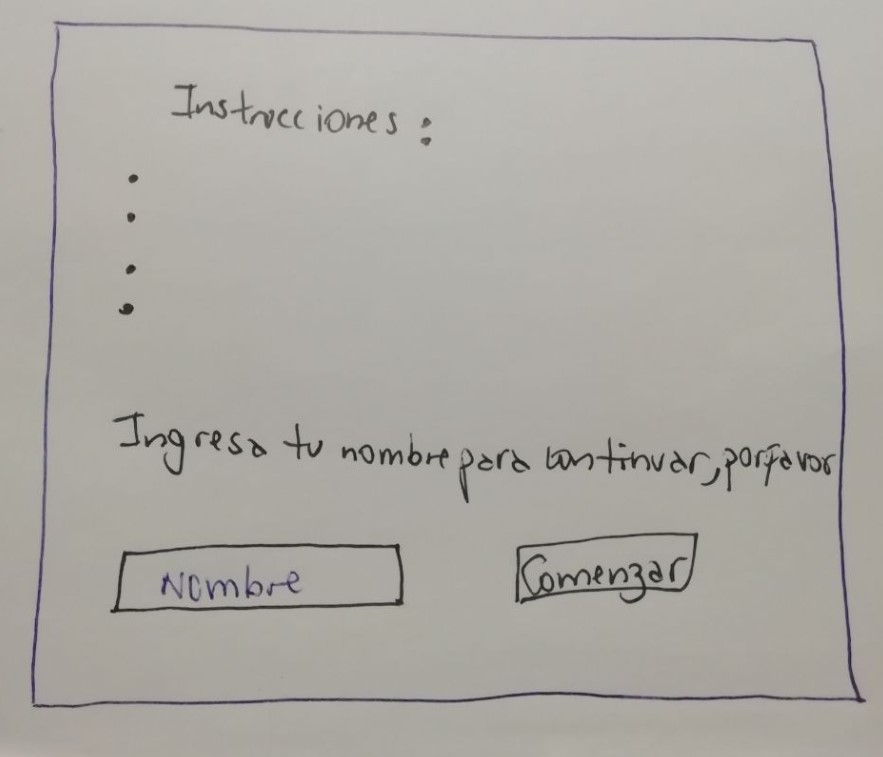 Instrucciones:
•
•
•
•
Ingresa tu nombre para continuar, porfavor
Nombre
Comenzar